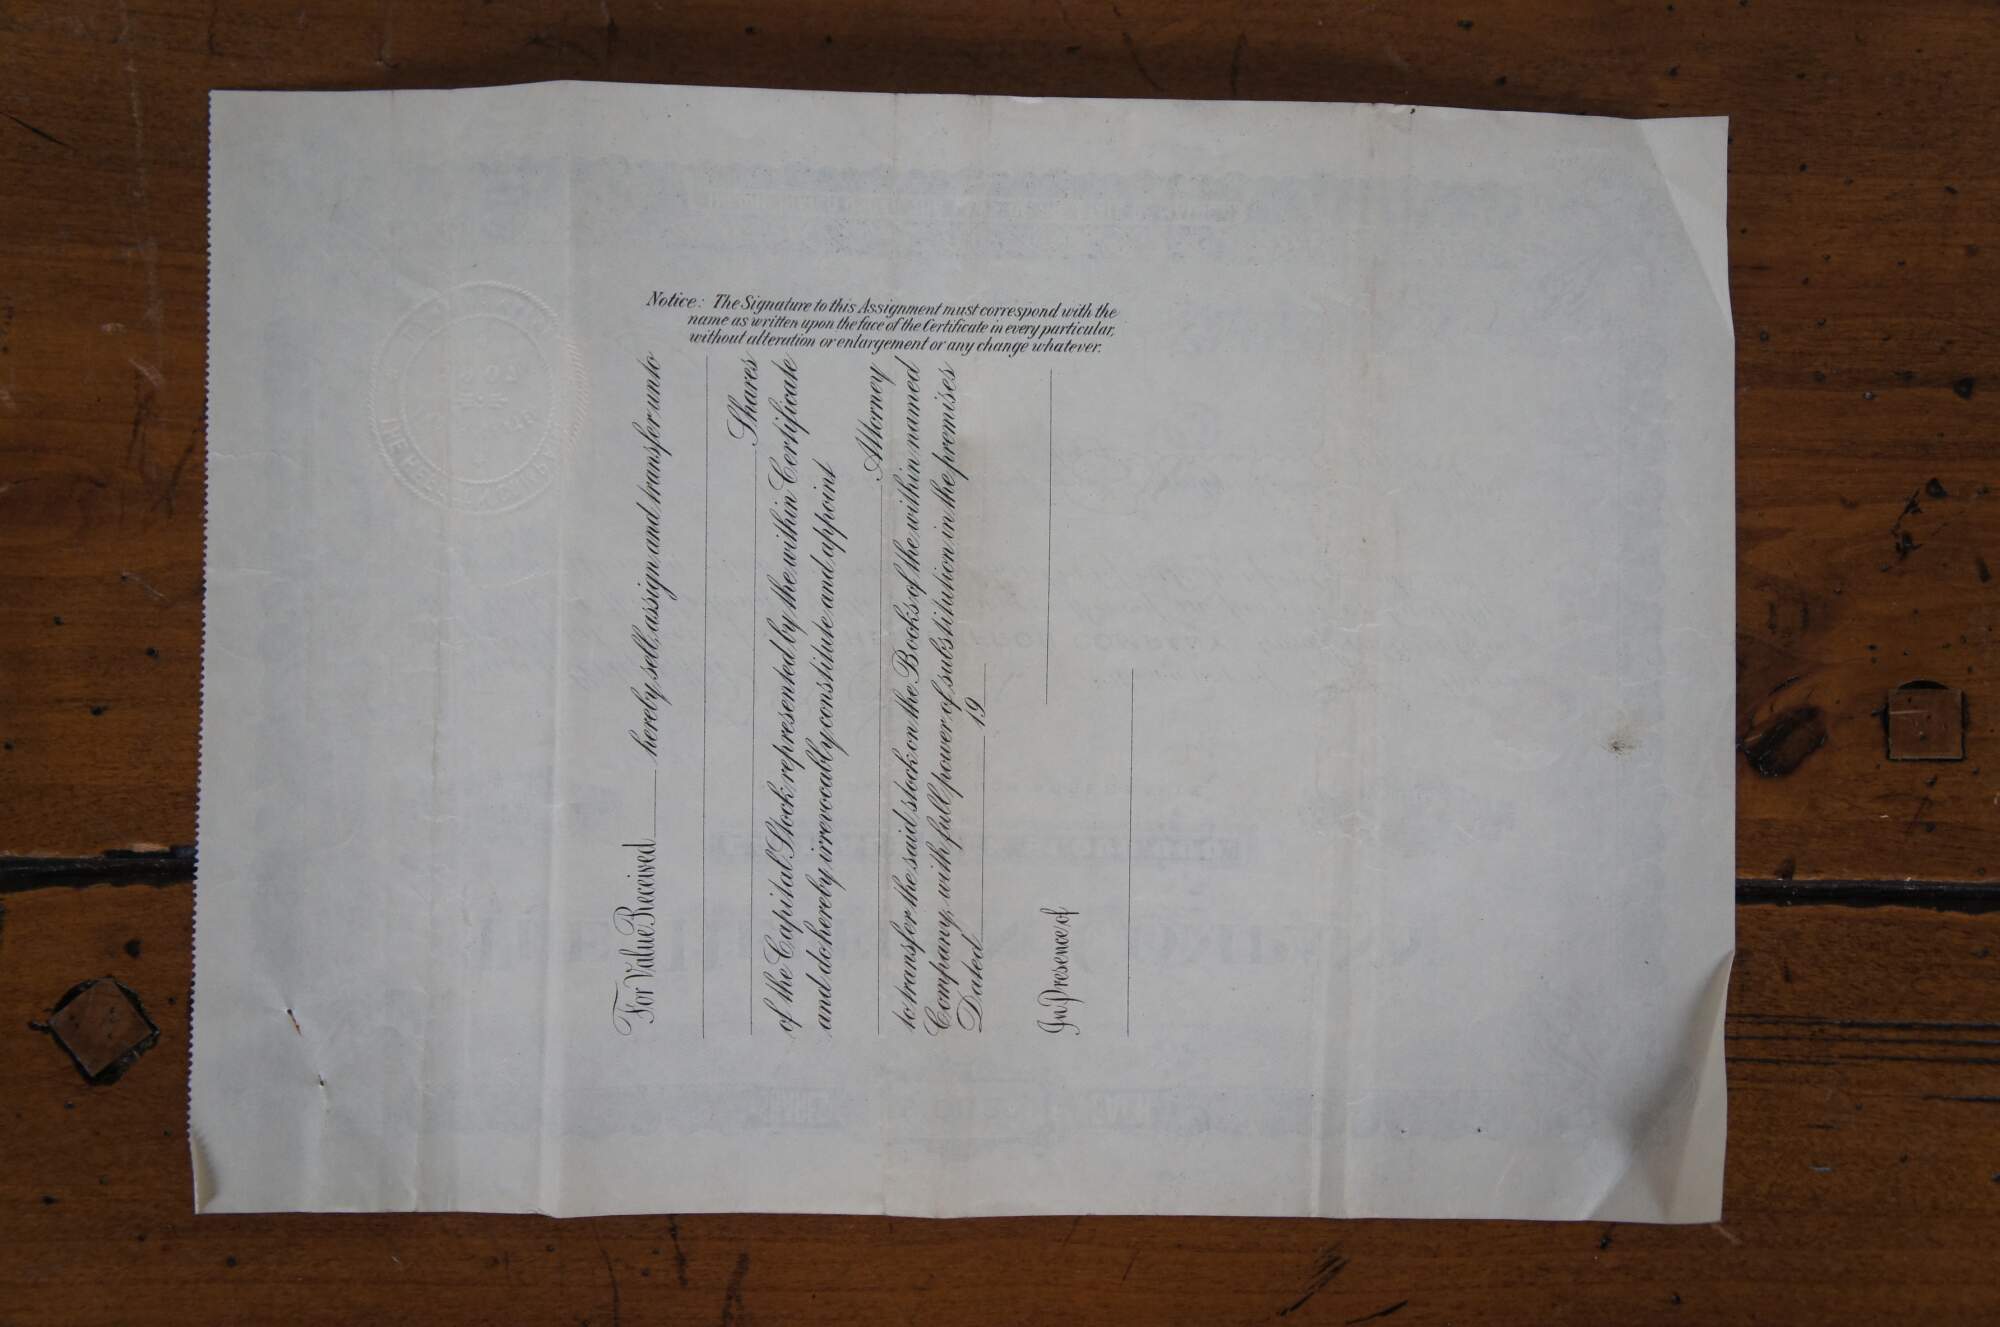 Notice: The Signature to this Assignment must correspond with the
name as written upon the face of the Certificate in every particular,
without alteration or enlargement or any change whatever.
For Value Received hereby sell, assign and transfer unto
Shares
of the Capital Stock represented by the within Certificate
and do hereby irrevocably constitute and appoint
Attorney
to transfer the said stock on the Books of the within named
Company, with full power of substitution in the premises
Dated 19
In Presence of